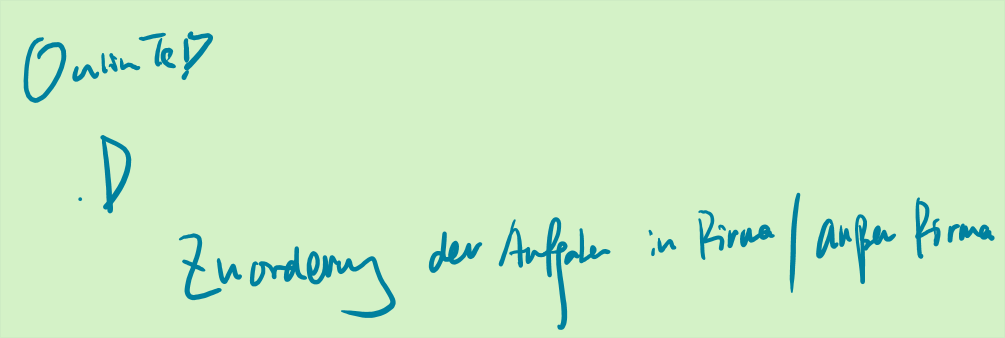 Onlin TeD
. D
Zuorderung der Aufgaben in Firma / außer Firma